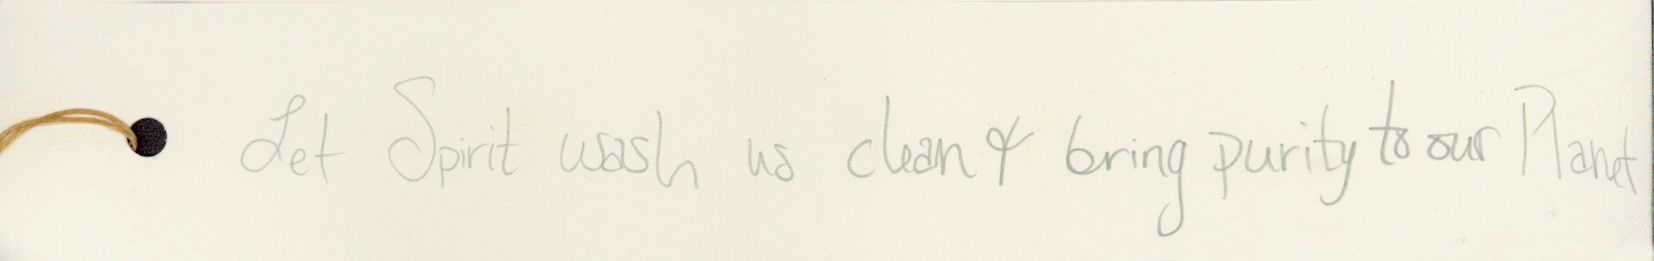 Let Spirit wash us clean & bring purity to our Planet